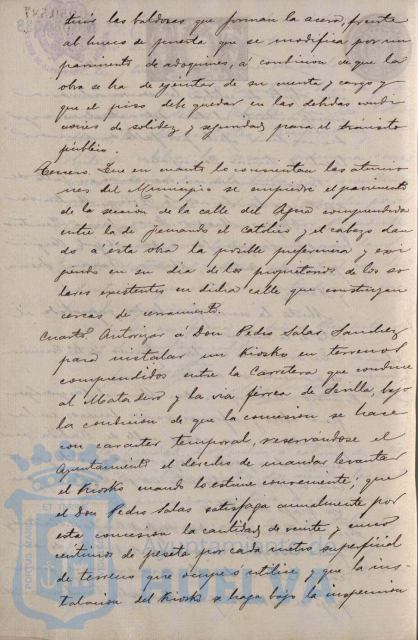 tuir las baldosas que forman la acera, frente
al hueco de puerta que se modifica por un
pavimento de adoquines, á condicion de que la
obra se ha de ejecutar de su cuenta y cargo y
que el piso debe quedar en las debidas condi
ciones de solidez y seguridad para el tránsito
público.
Tercero. Que en cuanto lo consientan las atencio
nes del Municipio se empiedre el pavimento
de la seccion de la calle del Agua comprendida
entre la de Fernando el Católico y el cabezo dan
do á ésta obra la posible preferencia y exi
giendo en su dia de los propietarios de los so
lares existentes en dicha calle que construyan
cercas de cerramiento.
Cuarto. Autorizar á Don Pedro Salas Sanchez
para instalar un Kiosko en terrenos
comprendidos entre la Carretera que conduce
al Matadero y la via ferrea de Sevilla, bajo
la condicion de que la concesion se hace
con carácter temporal, reservándose el
Ayuntamiento el derecho de mandar levantar
el Kiosko cuando lo estime conveniente; que
el Don Pedro Salas satisfaga anualmente por
esta concesion la cantidad de veinte y cinco
centimos de peseta por cada metro superficial
de terreno que ocupe ó utilice y que la ins-
talacion del Kiosko se haga bajo la inspeccion
PORTUS MARIS
HUELVA